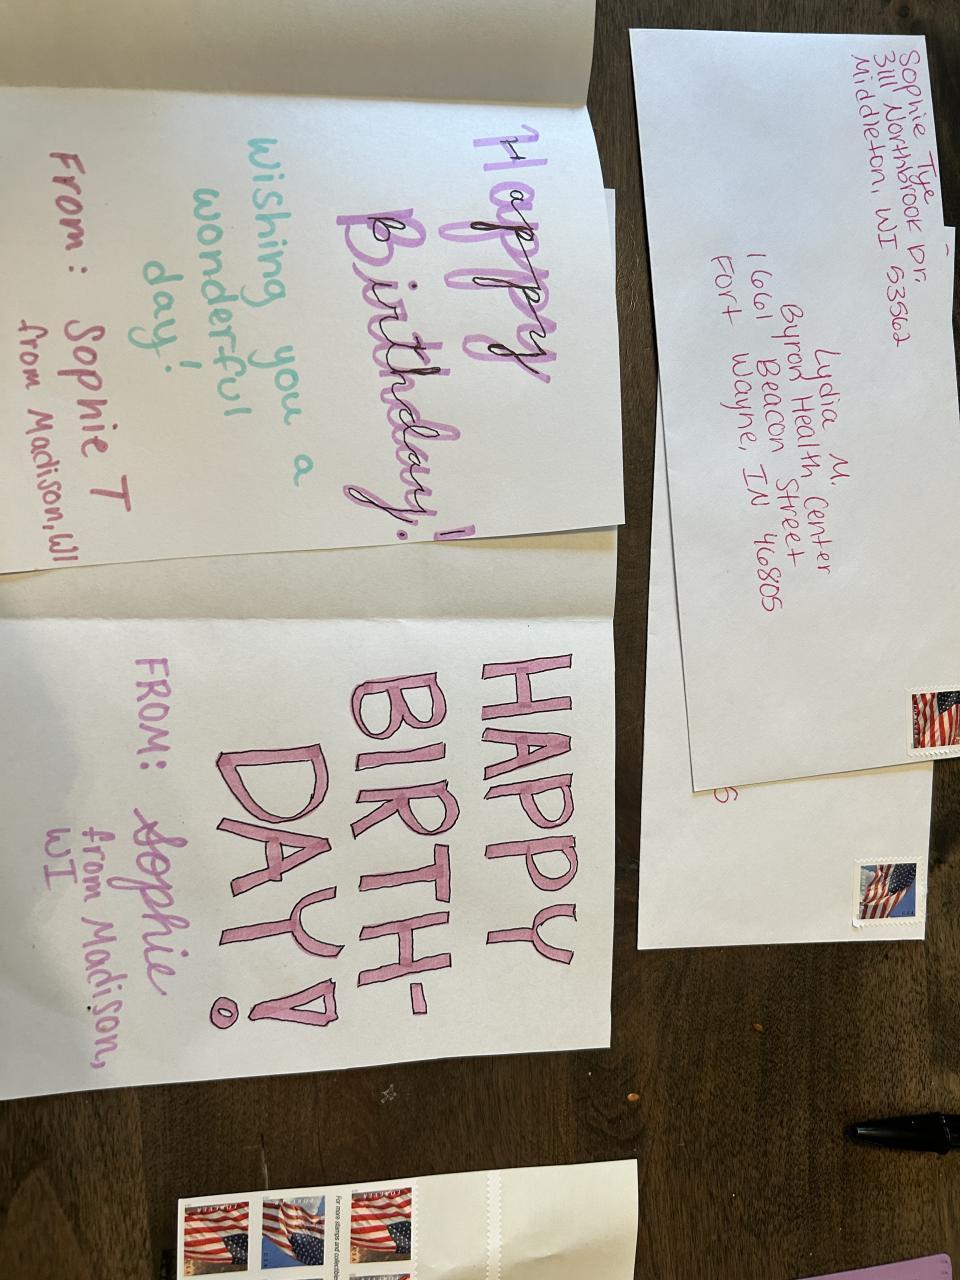 Sophie Tye
3111 Northbrook Dr.
Middleton, WI 53562
Lydia M.
Byron Health Center
1661 Beacon Street
Fort Wayne, IN 46805
5
Happy
Birthday!
Wishing you a
wonderful
day!
From: Sophie T
from Madison, WI
HAPPY
BIRTH-
DAY!
FROM: Sophie
from Madison,
WI
FOREVER
FOREVER
For more stamps and collectibles
FOREVER
USA